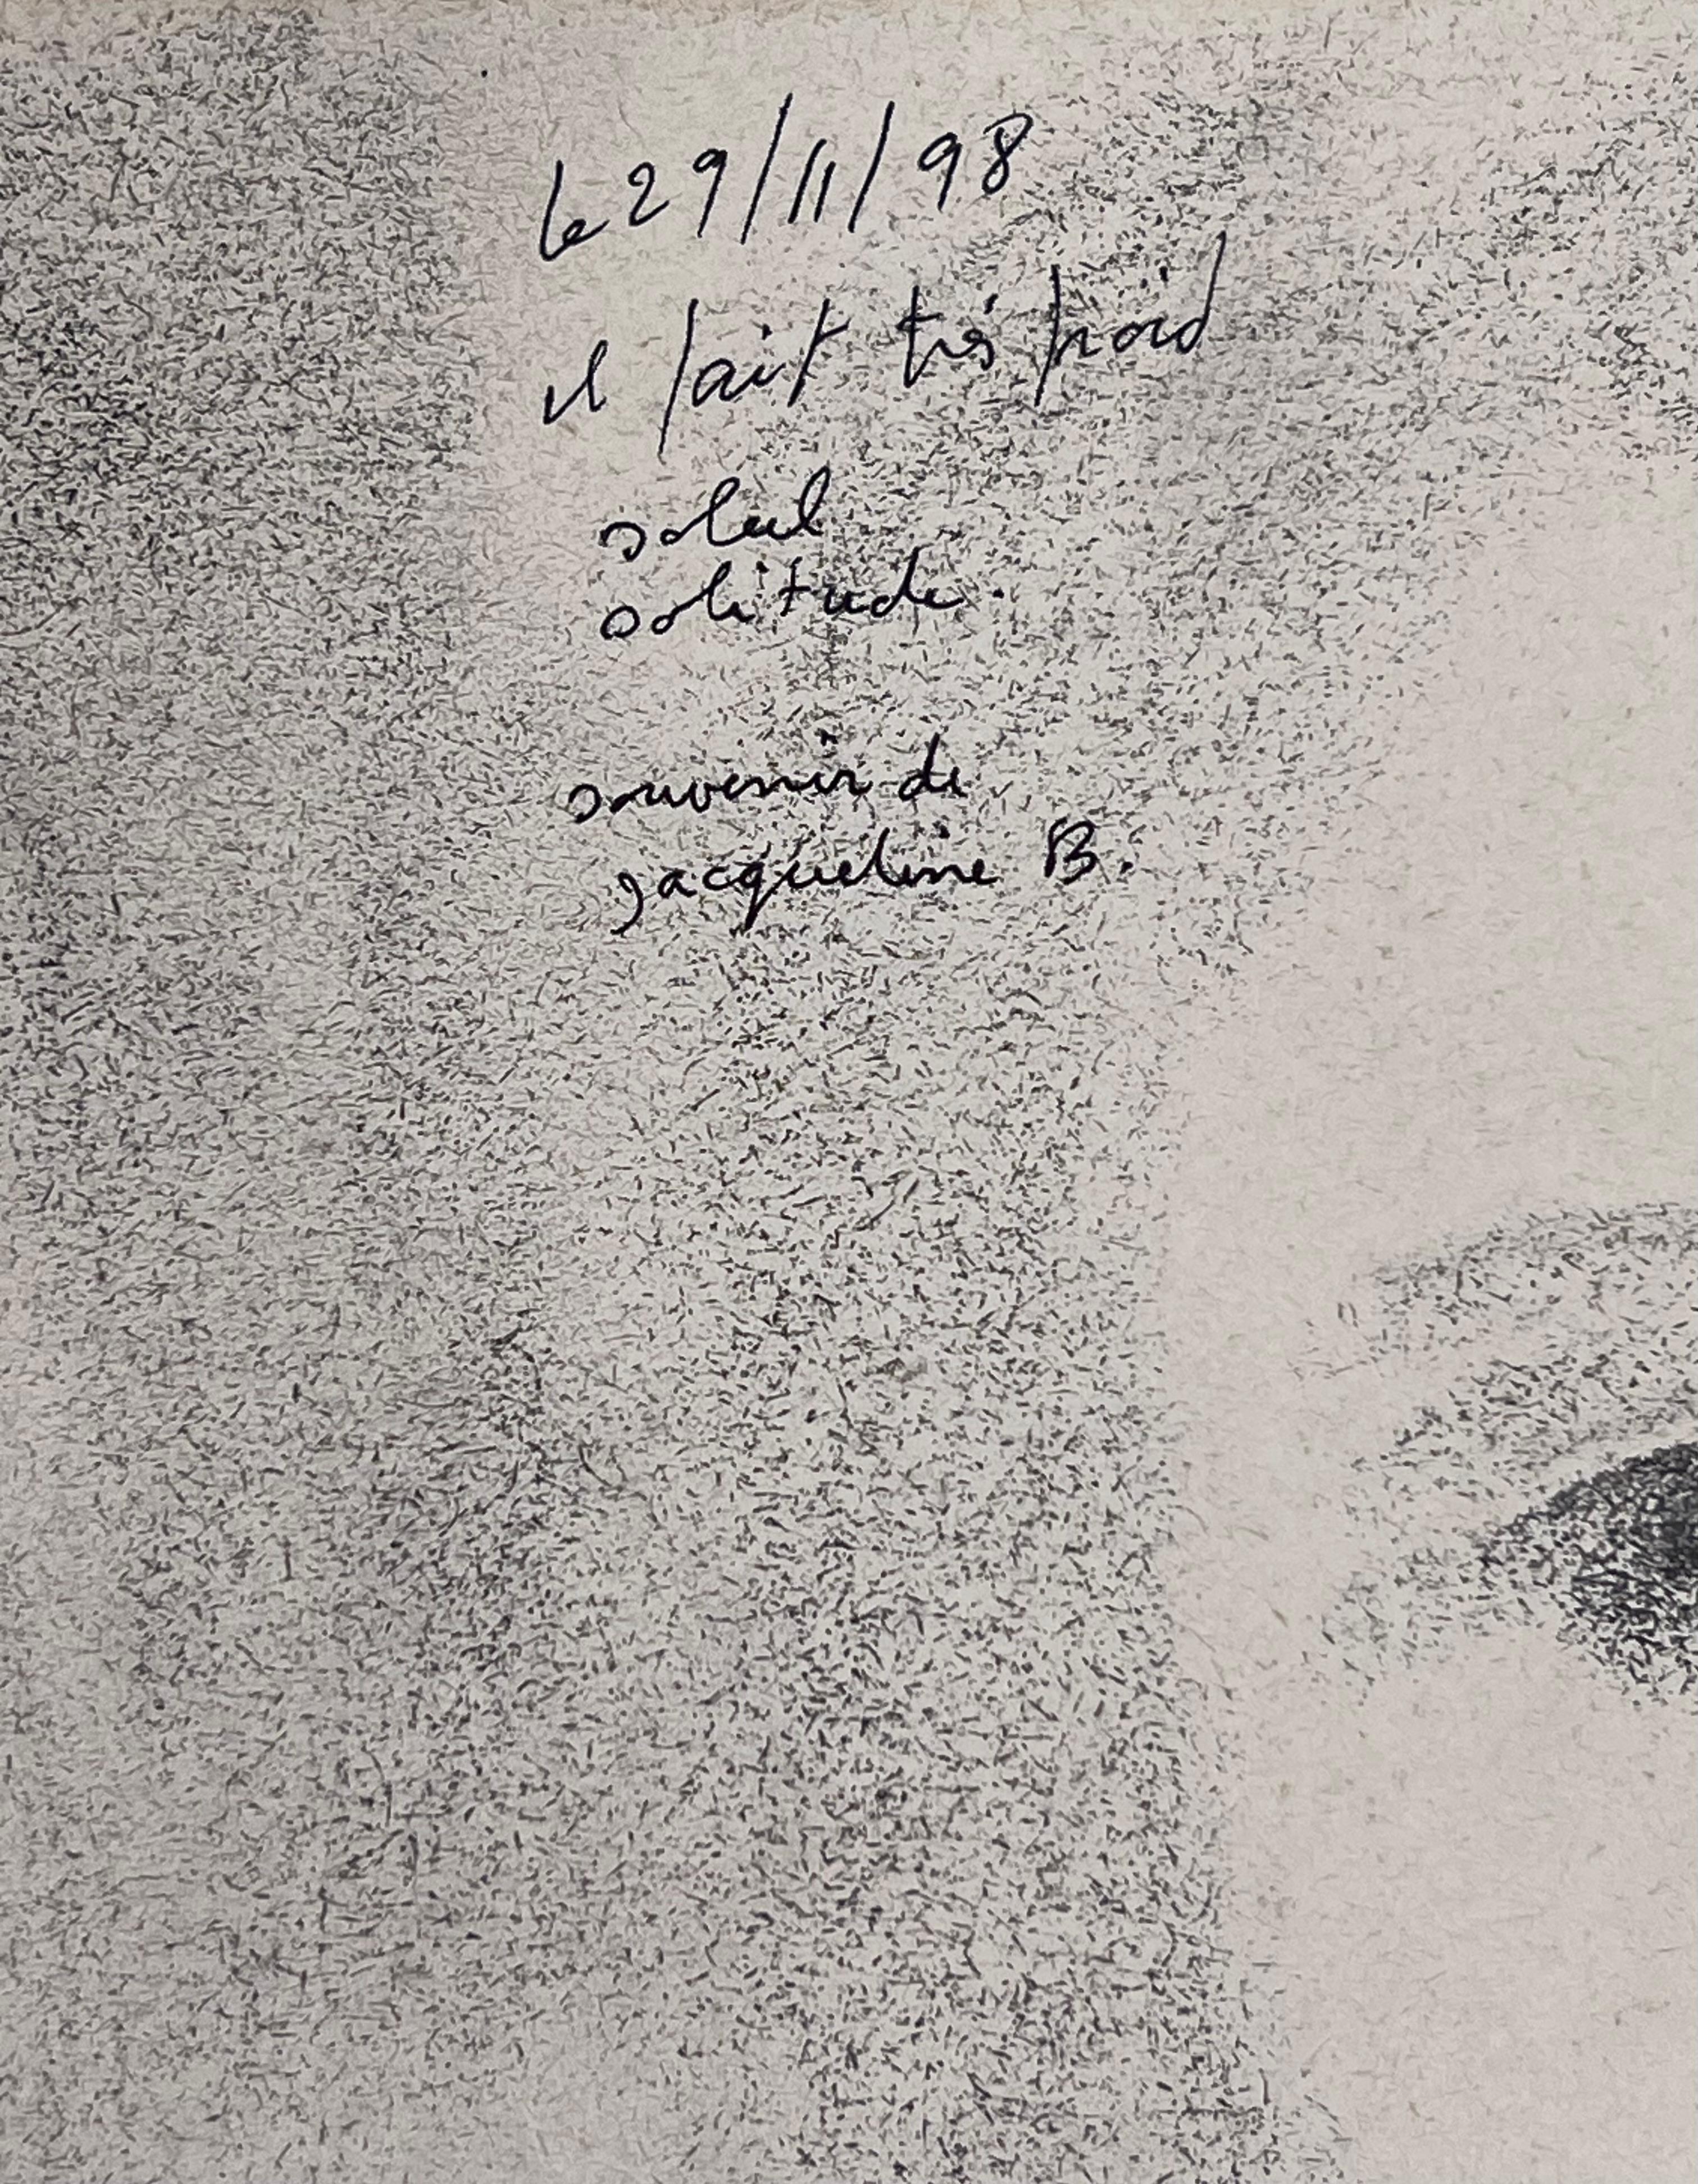 le 29/11/98
il fait très froid
soleil
solitude.
souvenir de
jacqueline B.